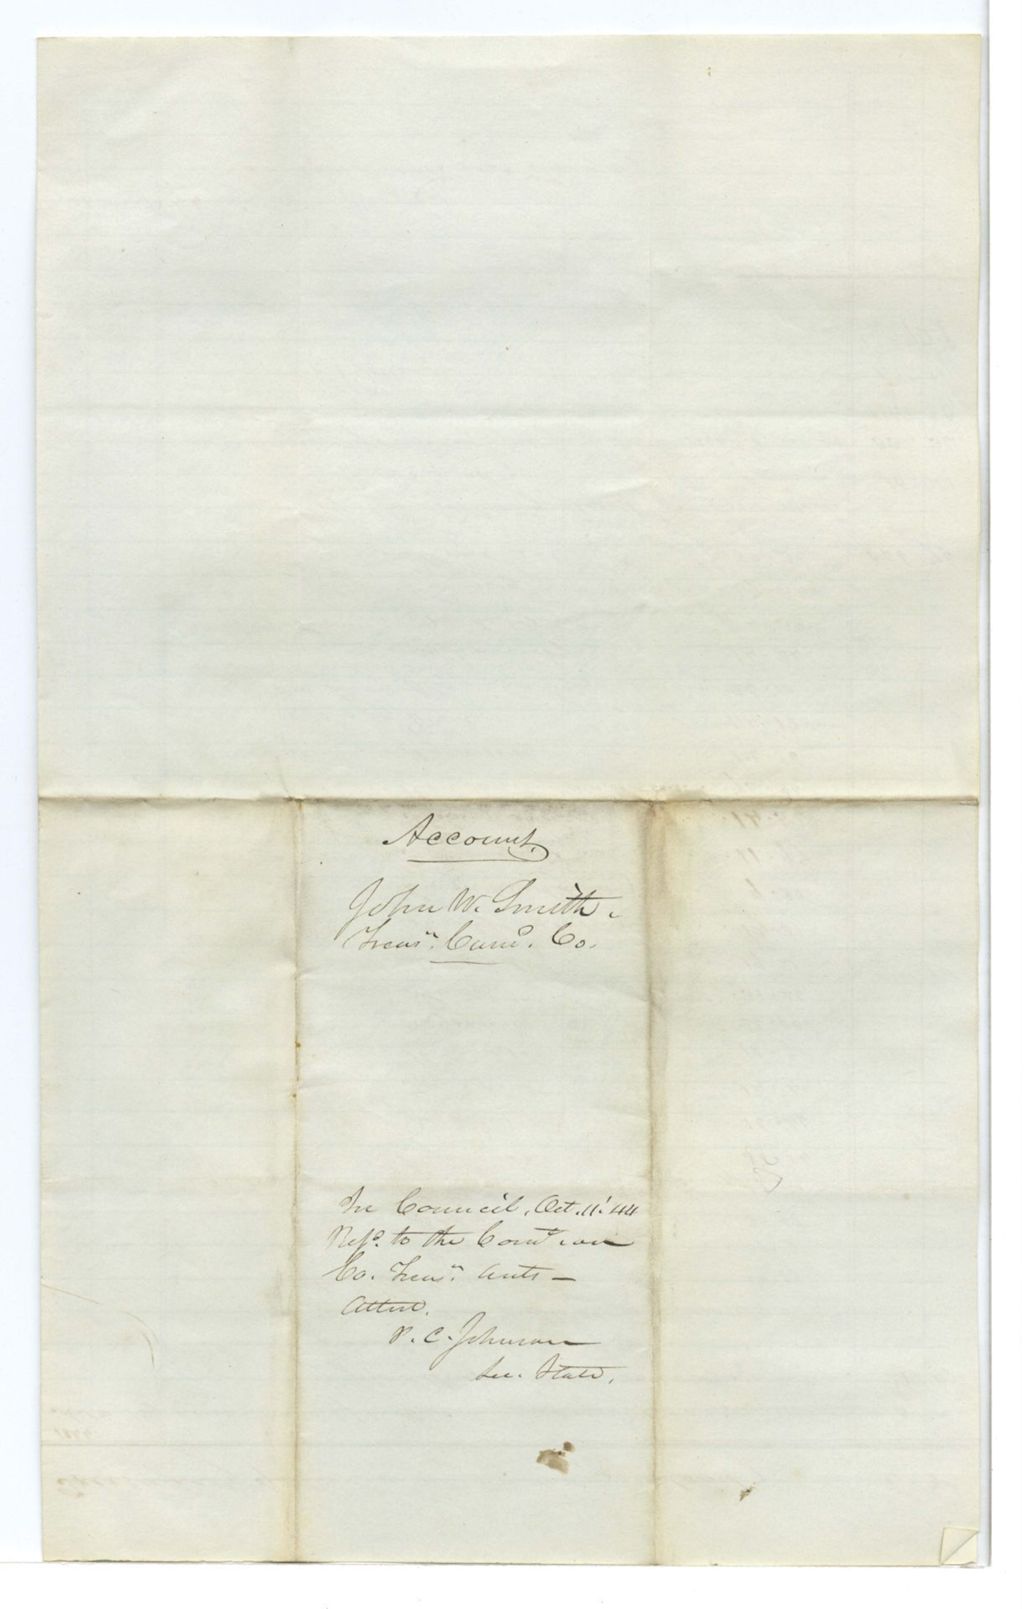 Account.
John W. Smith.
Treasr. Cumd. Co.
In Council, Oct. 11. '44
Refd. to the Comtee on
Co. Treasr. Accts —
Attest.
P. C. Johnson
Sec. State.